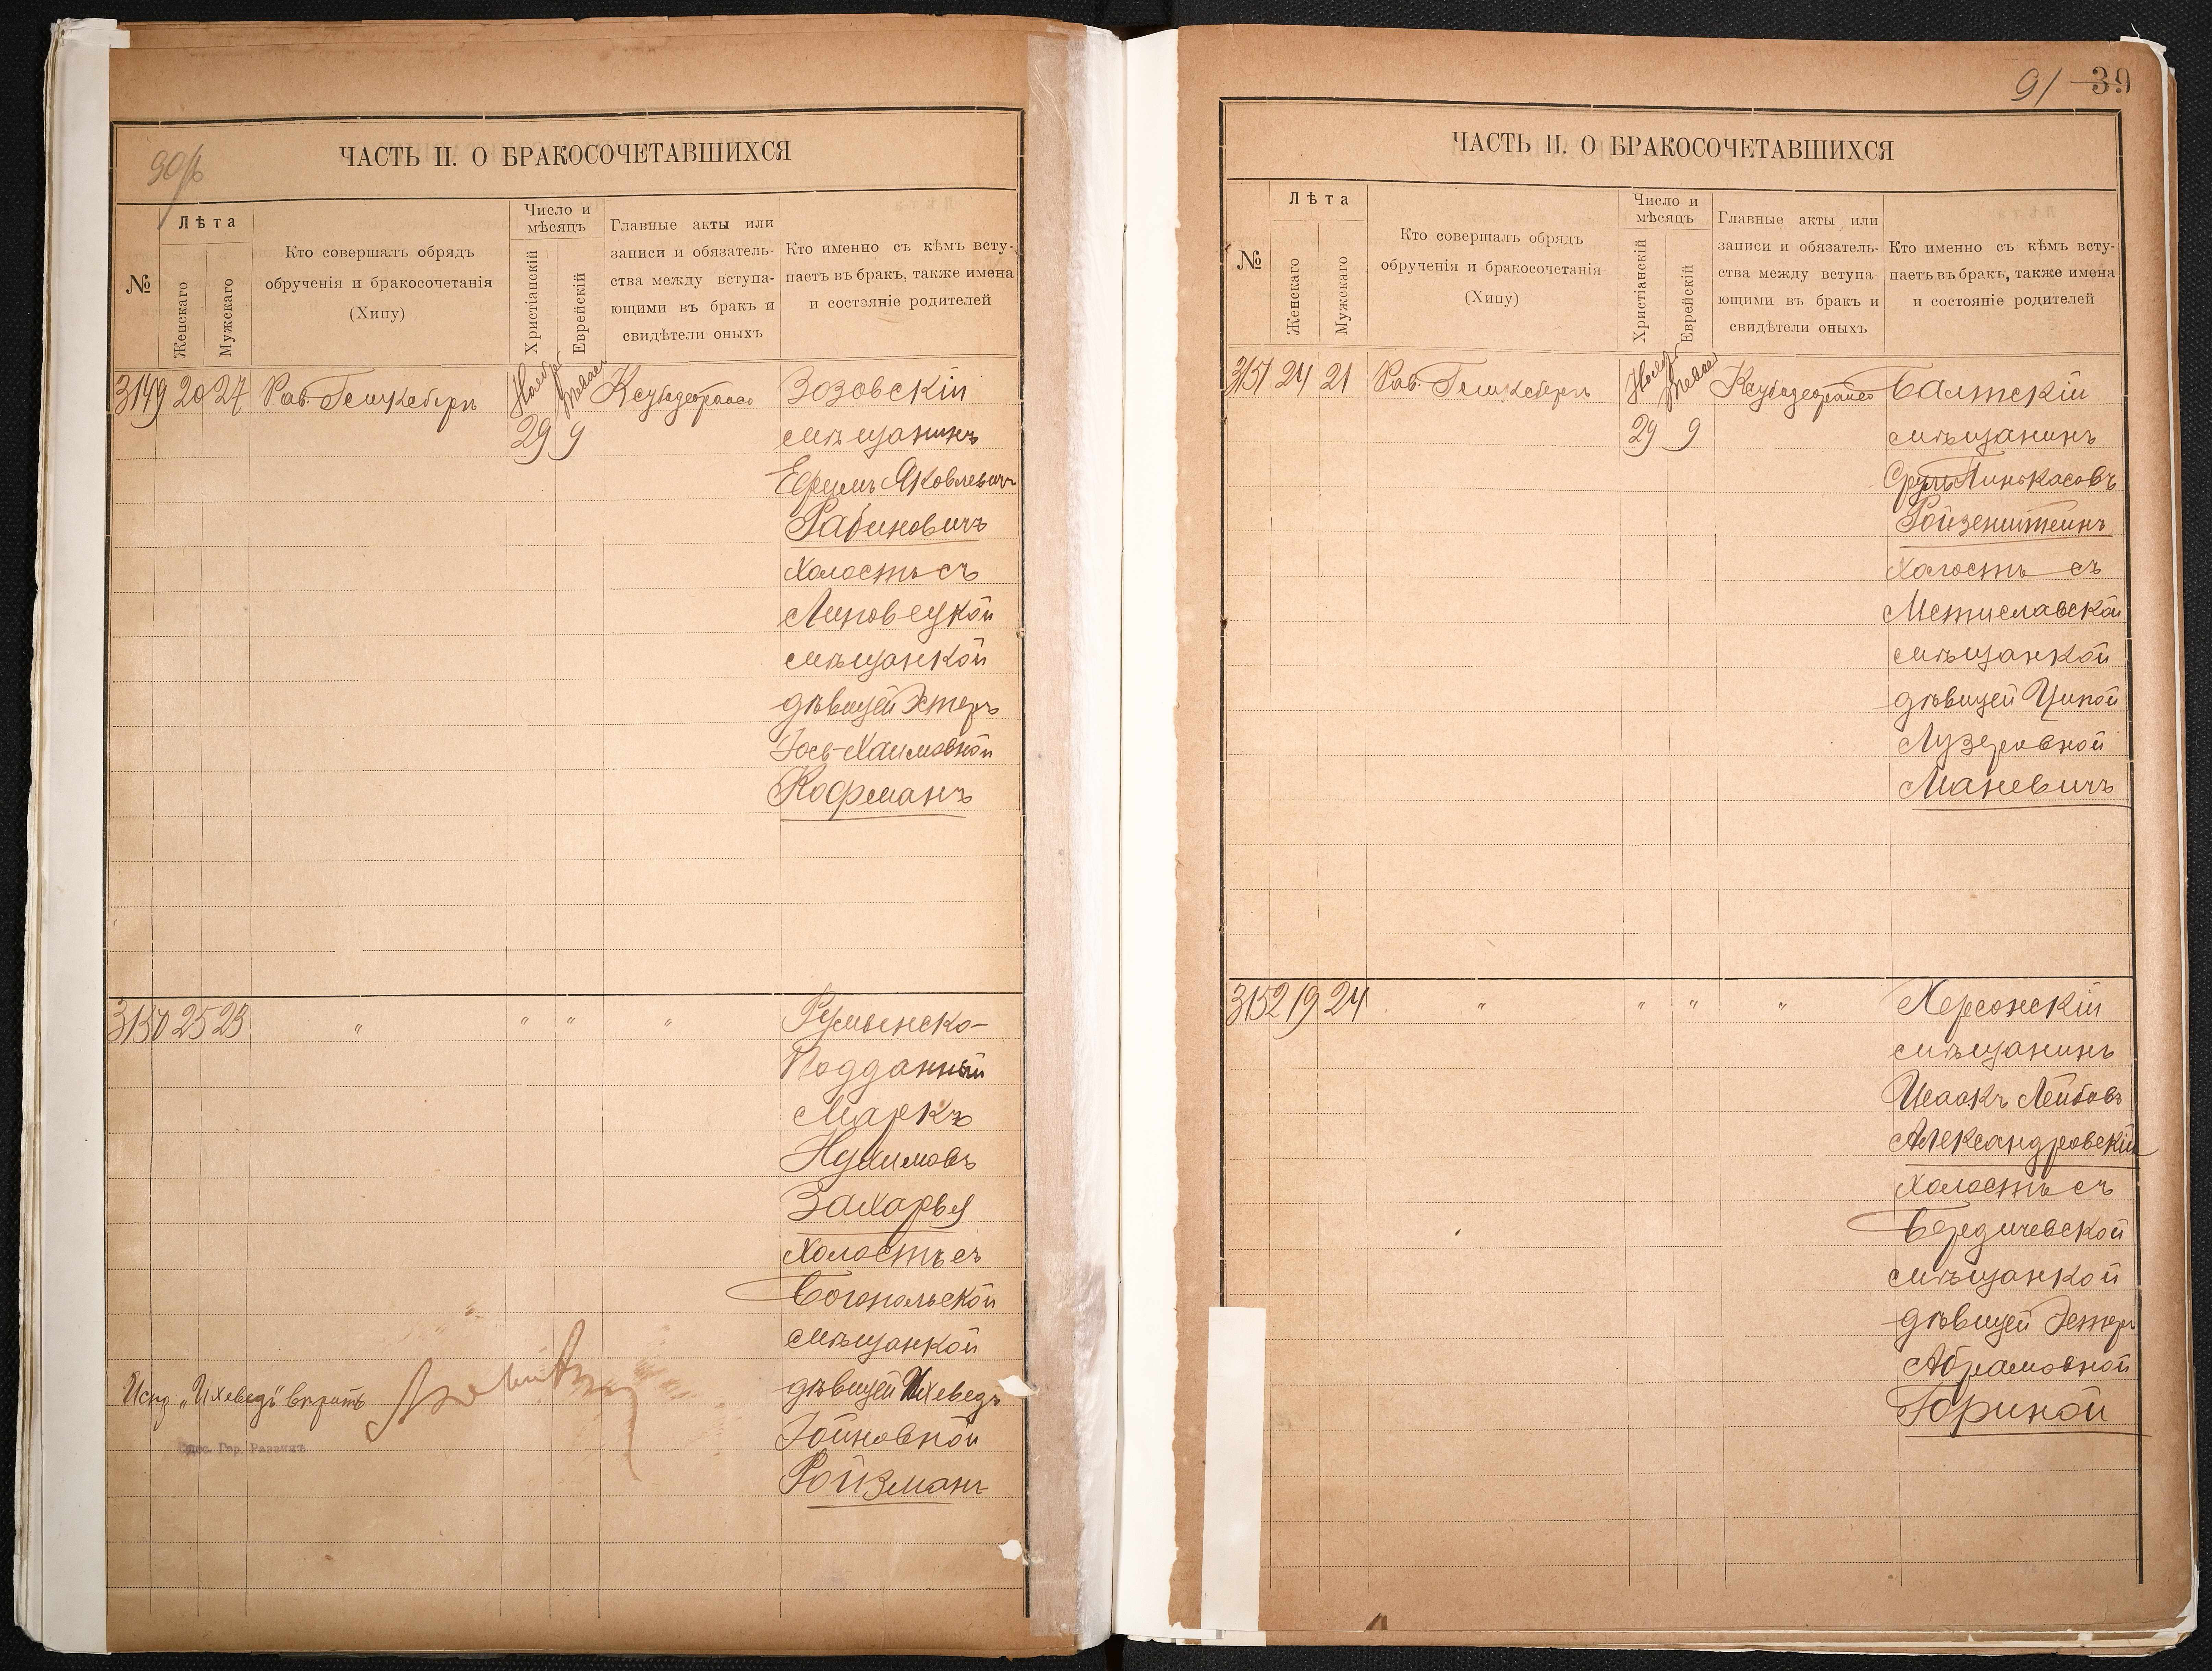 90/б
ЧАСТЬ II. О БРАКОСОЧЕТАВШИХСЯ
№
Лѣта
Женскаго
Мужскаго
Кто совершалъ обрядъ
обрученія и бракосочетанія
(Хипу)
Число и
мѣсяцъ
Христіанскій
Еврейскій
Главные акты или
записи и обязатель-
ства между вступа-
ющими въ бракъ и
свидѣтели оныхъ
Кто именно съ кѣмъ всту-
паетъ въ бракъ, также имена
и состояніе родителей
3149 20 27 Рав. Ноябрь Зозовскій
29 9 мѣщанинъ
Ефуимъ Яковлевичъ
Рабиновичъ
Холостъ съ
Липовецкой
мѣщанкой
дѣвицей Эстеръ
Іось-Хаимовной
Кофманъ
3150 25 23 " " " " Румынско-
Подданный
Маркъ
Нухимовъ
Захарья
Холостъ съ
Богопольской
мѣщанкой
Испр „Ихеведъ" вѣрить дѣвицей Ихеведъ
Одес. Гор. Раввинъ Іойновной
Ройзманъ
91 39
ЧАСТЬ II. О БРАКОСОЧЕТАВШИХСЯ
№
Лѣта
Женскаго
Мужскаго
Кто совершалъ обрядъ
обрученія и бракосочетанія
(Хипу)
Число и
мѣсяцъ
Христіанскій
Еврейскій
Главные акты или
записи и обязатель-
ства между вступа
ющими въ бракъ и
свидѣтели оныхъ
Кто именно съ кѣмъ всту-
паетъ въ бракъ, также имена
и состояніе родителей
3151 24 21 Рав. Ноябрь Балтскій
29 9 мѣщанинъ
Сруль Пинькасовъ
Ройзенштейнъ
Холостъ съ
Мстиславской
мѣщанкой
дѣвицей Ципой
Лузеровной
Маневичъ
3152 19 24 " " " " Херсонскій
мѣщанинъ
Исаакъ Лейбовъ
Александровскій
Холостъ съ
Бердичевской
мѣщанкой
дѣвицей Эстеръ
Абрамовной
Гориной